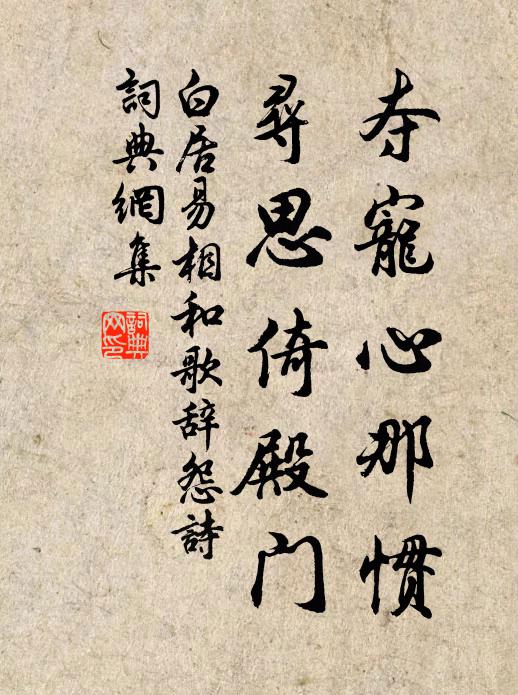 夺寵心那慣
尋思倚殿门
白居易相和歌辞怨詩
詞典網集
詞典网印